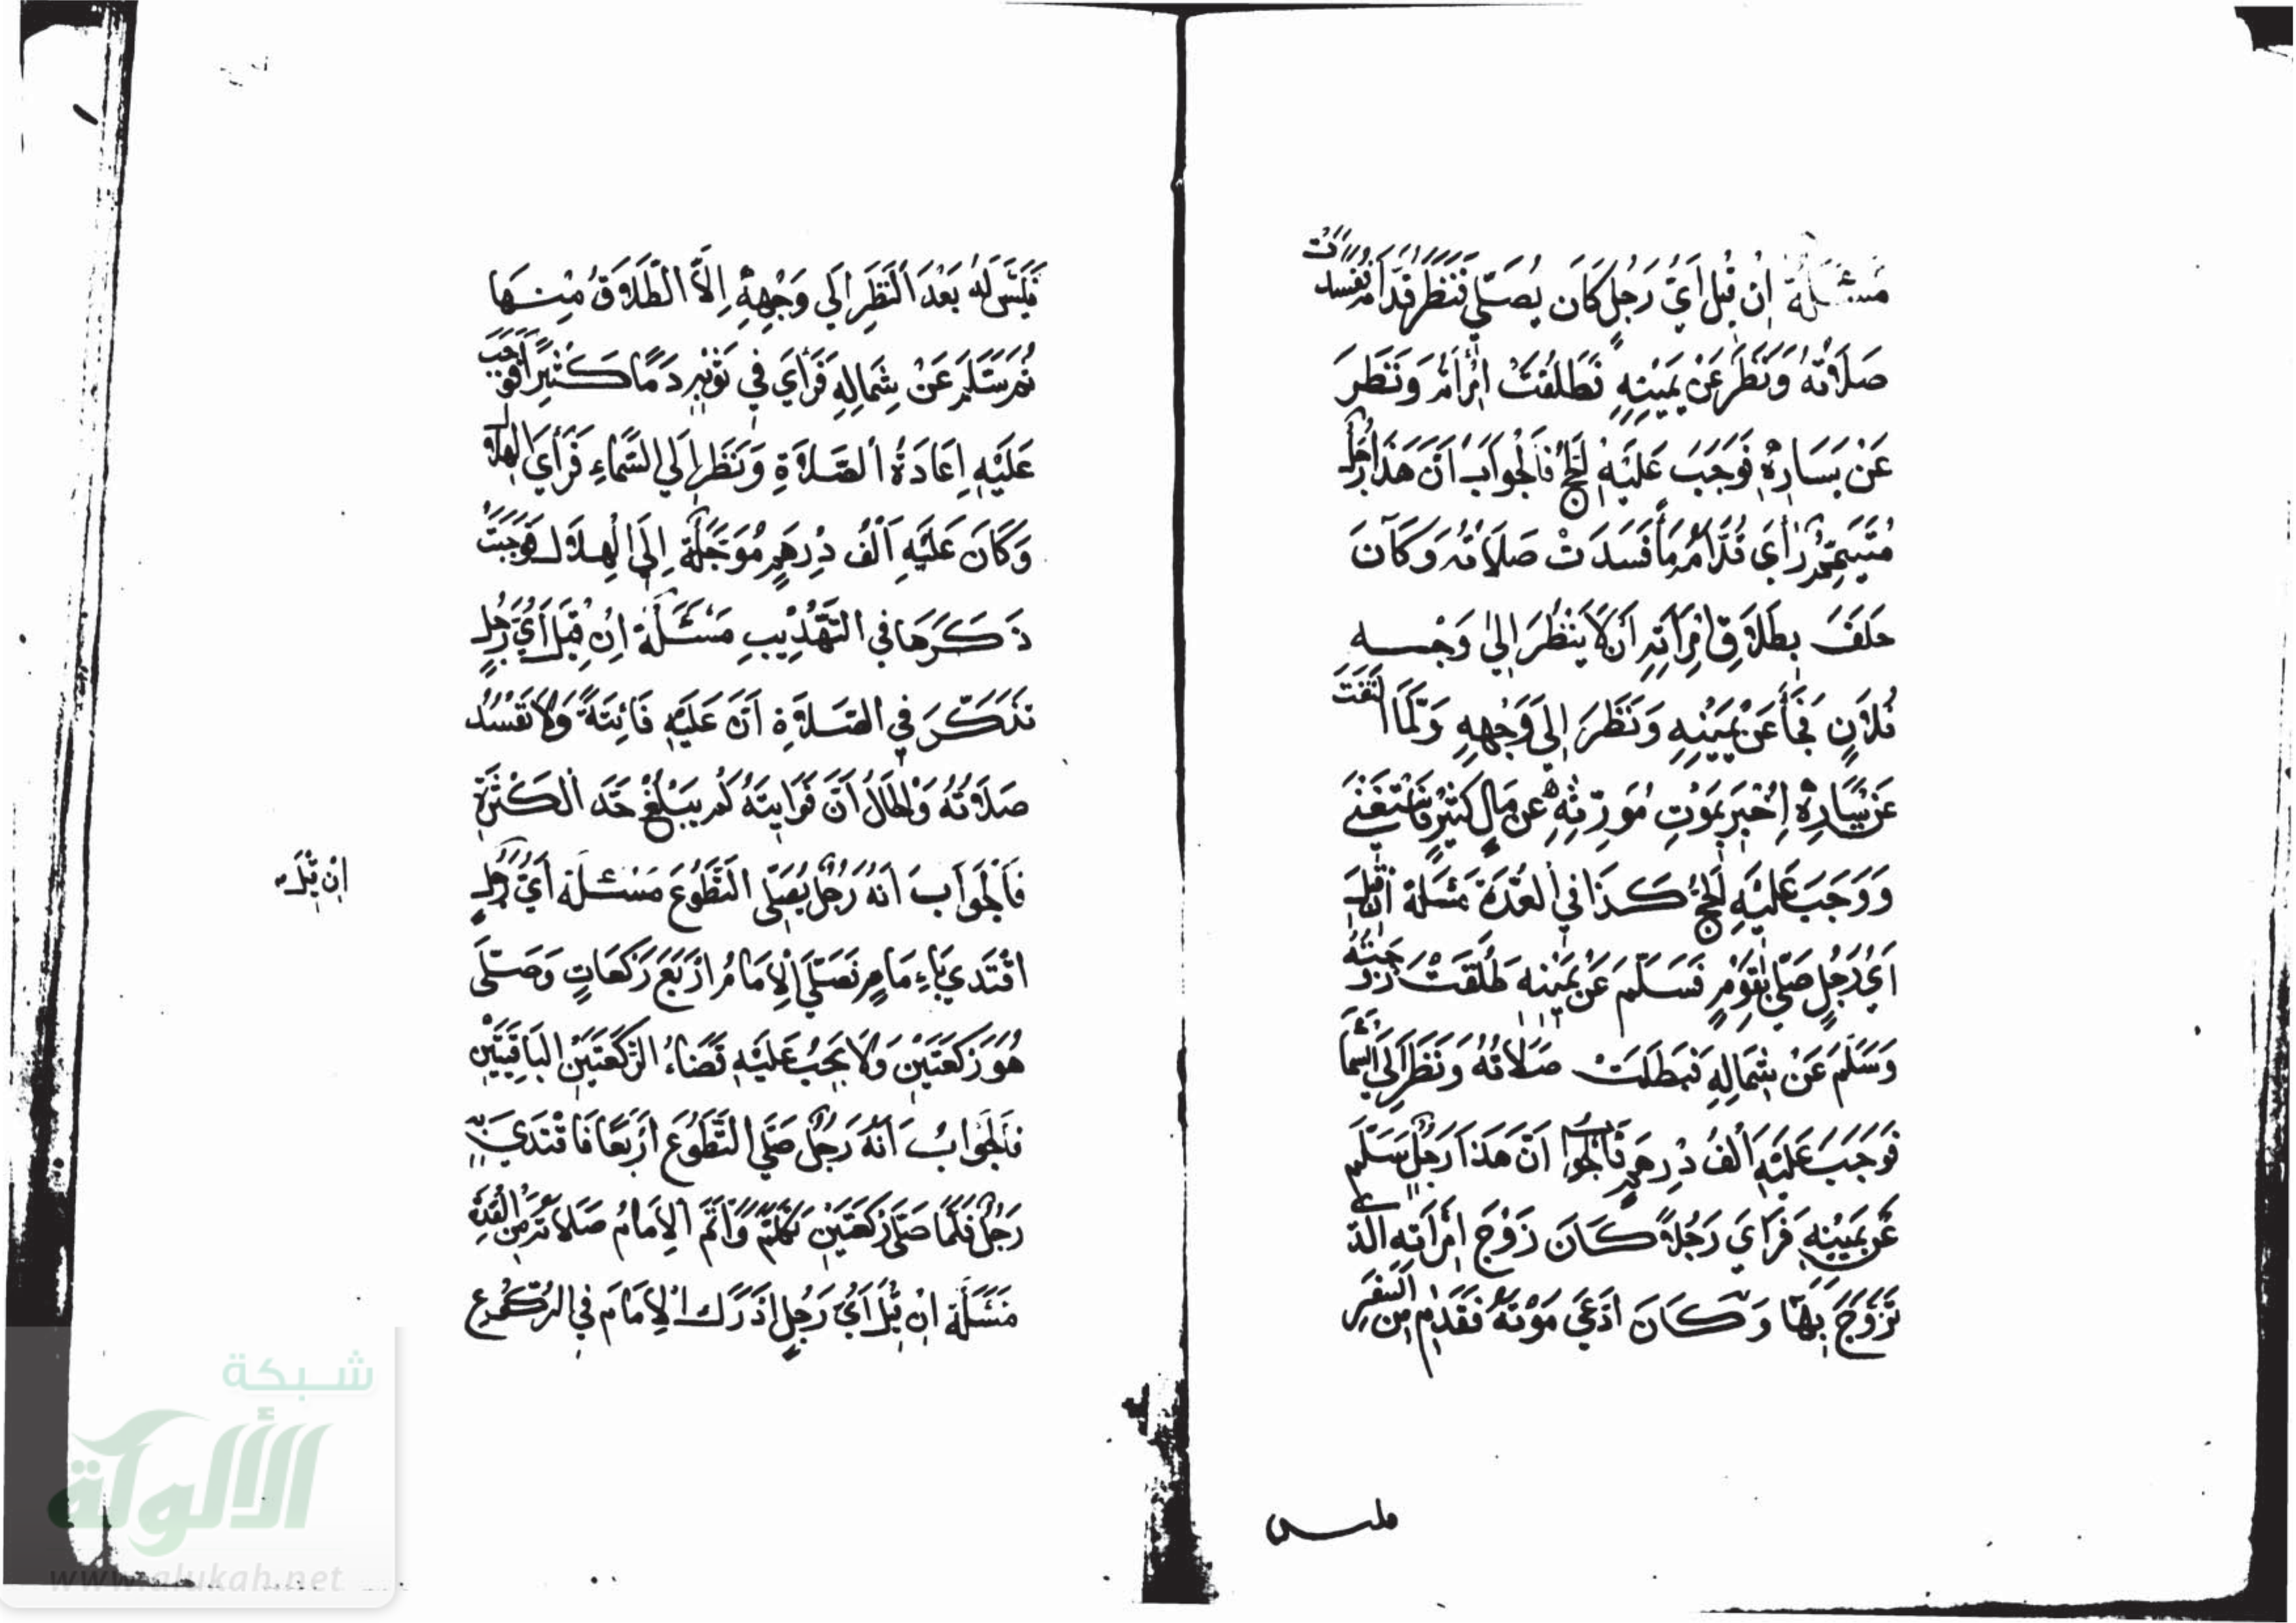 مَسْئَلَةٌ اِنْ قِيْلَ اَيُّ رَجُلٍ كَانَ يُصَلِّي فَنَظَرَ قُدَّامَهُ فَسَدَتْ
صَلَاتُهُ وَنَظَرَ عَنْ يَمِيْنِهِ فَطَلُقَتْ اِمْرَأَتُهُ وَنَظَرَ
عَنْ يَسَارِهِ فَوَجَبَ عَلَيْهِ الْحَجُّ فَالْجَوَابُ اَنَّ هَذَا رَجُلٌ
مُتَيَمِّمٌ رَاَى قُدَّامَهُ مَاءً فَسَدَتْ صَلَاتُهُ وَكَانَ
حَلَفَ بِطَلَاقِ امْرَأَتِهِ اَنْ لَا يَنْظُرَ اِلَى وَجْـــهِ
فُلَانٍ فَجَاءَ عَنْ يَمِيْنِهِ وَنَظَرَ اِلَى وَجْهِهِ وَلَمَّا الْتَفَتَ
عَنْ يَسَارِهِ اُخْبِرَ بِمَوْتِ مُوَرِّثِهِ عَنْ مَالٍ كَثِيْرٍ فَاسْتَغْنَى
وَوَجَبَ عَلَيْهِ الْحَجُّ كَذَا فِي الْعُدَّةِ مَسْئَلَةٌ اِنْ قِيْلَ
اَيُّ رَجُلٍ صَلَّى بِقَوْمٍ فَسَلَّمَ عَنْ يَمِيْنِهِ طَلُقَتْ زَوْجَتُهُ
وَسَلَّمَ عَنْ شِمَالِهِ فَبَطَلَتْ صَلَاتُهُ وَنَظَرَ اِلَى السَّمَاءِ
فَوَجَبَ عَلَيْهِ اَلْفُ دِرْهَمٍ فَالْجَوَابُ اَنَّ هَذَا رَجُلٌ سَلَّمَ
عَنْ يَمِيْنِهِ فَرَاَى رَجُلًا كَانَ زَوْجَ امْرَأَتِهِ الَّذِي
تَزَوَّجَ بِهَا وَكَانَ ادَّعَى مَوْتَهُ فَقَدِمَ مِنَ السَّفَرِ
فليس
فَلَيْسَ لَهُ بَعْدَ النَّظَرِ اِلَى وَجْهِهِ اِلَّا الطَّلَاقُ مِنْـهَا
ثُمَّ سَلَّمَ عَنْ شِمَالِهِ فَرَاَى فِي ثَوْبِهِ دَمًا كَثِيْرًا فَوَجَبَ
عَلَيْهِ اِعَادَةُ الصَّلَاةِ وَنَظَرَ اِلَى السَّمَاءِ فَرَاَى الْهِلَالَ
وَكَانَ عَلَيْهِ اَلْفُ دِرْهَمٍ مُؤَجَّلَةٍ اِلَى الْهِلَالِ فَوَجَبَتْ
ذَكَرَهَا فِي التَّهْذِيْبِ مَسْئَلَةٌ اِنْ قِيْلَ اَيُّ رَجُلٍ
تَذَكَّرَ فِي الصَّلَاةِ اَنَّ عَلَيْهِ فَائِتَةً وَلَا تَفْسُدُ
صَلَاتُهُ وَالْحَالُ اَنَّ فَوَايِتَهُ لَمْ يَبْلُغْ حَدَّ الْكَثْرَةِ
فَالْجَوَابُ اَنَّهُ رَجُلٌ يُصَلِّى التَّطَوُّعَ مَسْئَلَةٌ اَيُّ رَجُلٍ
اِنْ قِيْلَ
اقْتَدَى بِاِمَامٍ فَصَلَّى الْاِمَامُ اَرْبَعَ رَكْعَاتٍ وَصَلَّى
هُوَ رَكْعَتَيْنِ وَلَا يَجِبُ عَلَيْهِ قَضَاءُ الرَّكْعَتَيْنِ الْبَاقِيَتَيْنِ
فَالْجَوَابُ اَنَّهُ رَجُلٌ صَلَّى التَّطَوُّعَ اَرْبَعًا فَاقْتَدَى بِهِ
رَجُلٌ فَلَمَّا صَلَّى رَكْعَتَيْنِ تَكَلَّمَ وَاَتَمَّ الْاِمَامُ صَلَاتَهُ مِنَ الْعُدَّةِ
مَسْئَلَةٌ اِنْ قِيْلَ اَيُّ رَجُلٍ اَدْرَكَ الْاِمَامَ فِي الرُّكُوْعِ
شبكة
الألوكة
www.alukah.net